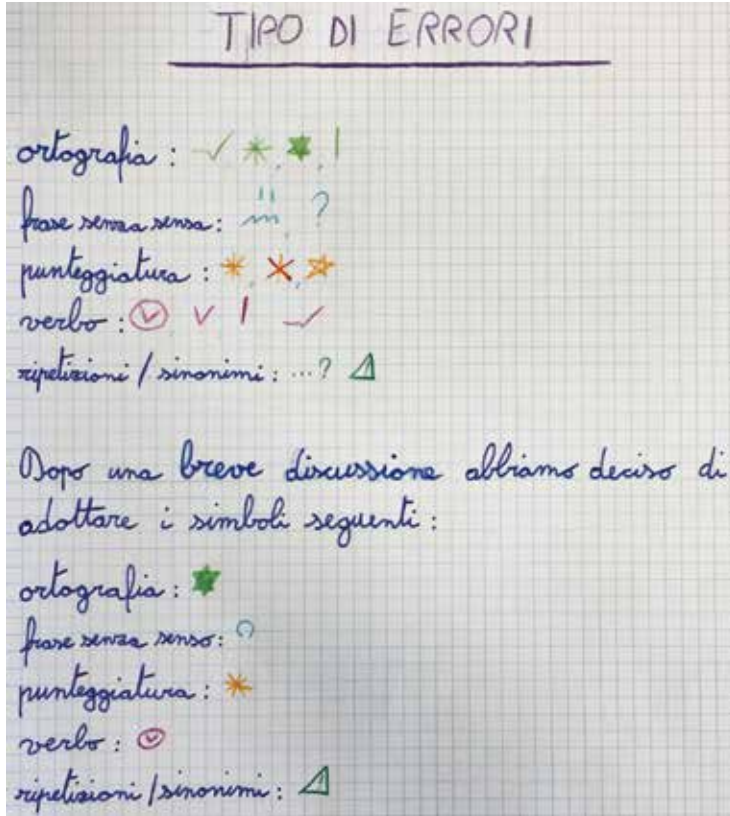 TIPO DI ERRORI
ortografia : ✓ * ★ !
frase senza sensa : ?
punteggiatura : * ✕ ☆
verbo : v v ! ✓
ripetizioni / sinonimi : ...?
Dopo una breve discussione abbiamo deciso di
adottare i simboli seguenti :
ortografia :
frase senza senso :
punteggiatura : *
verbo : v
ripetizioni / sinonimi :